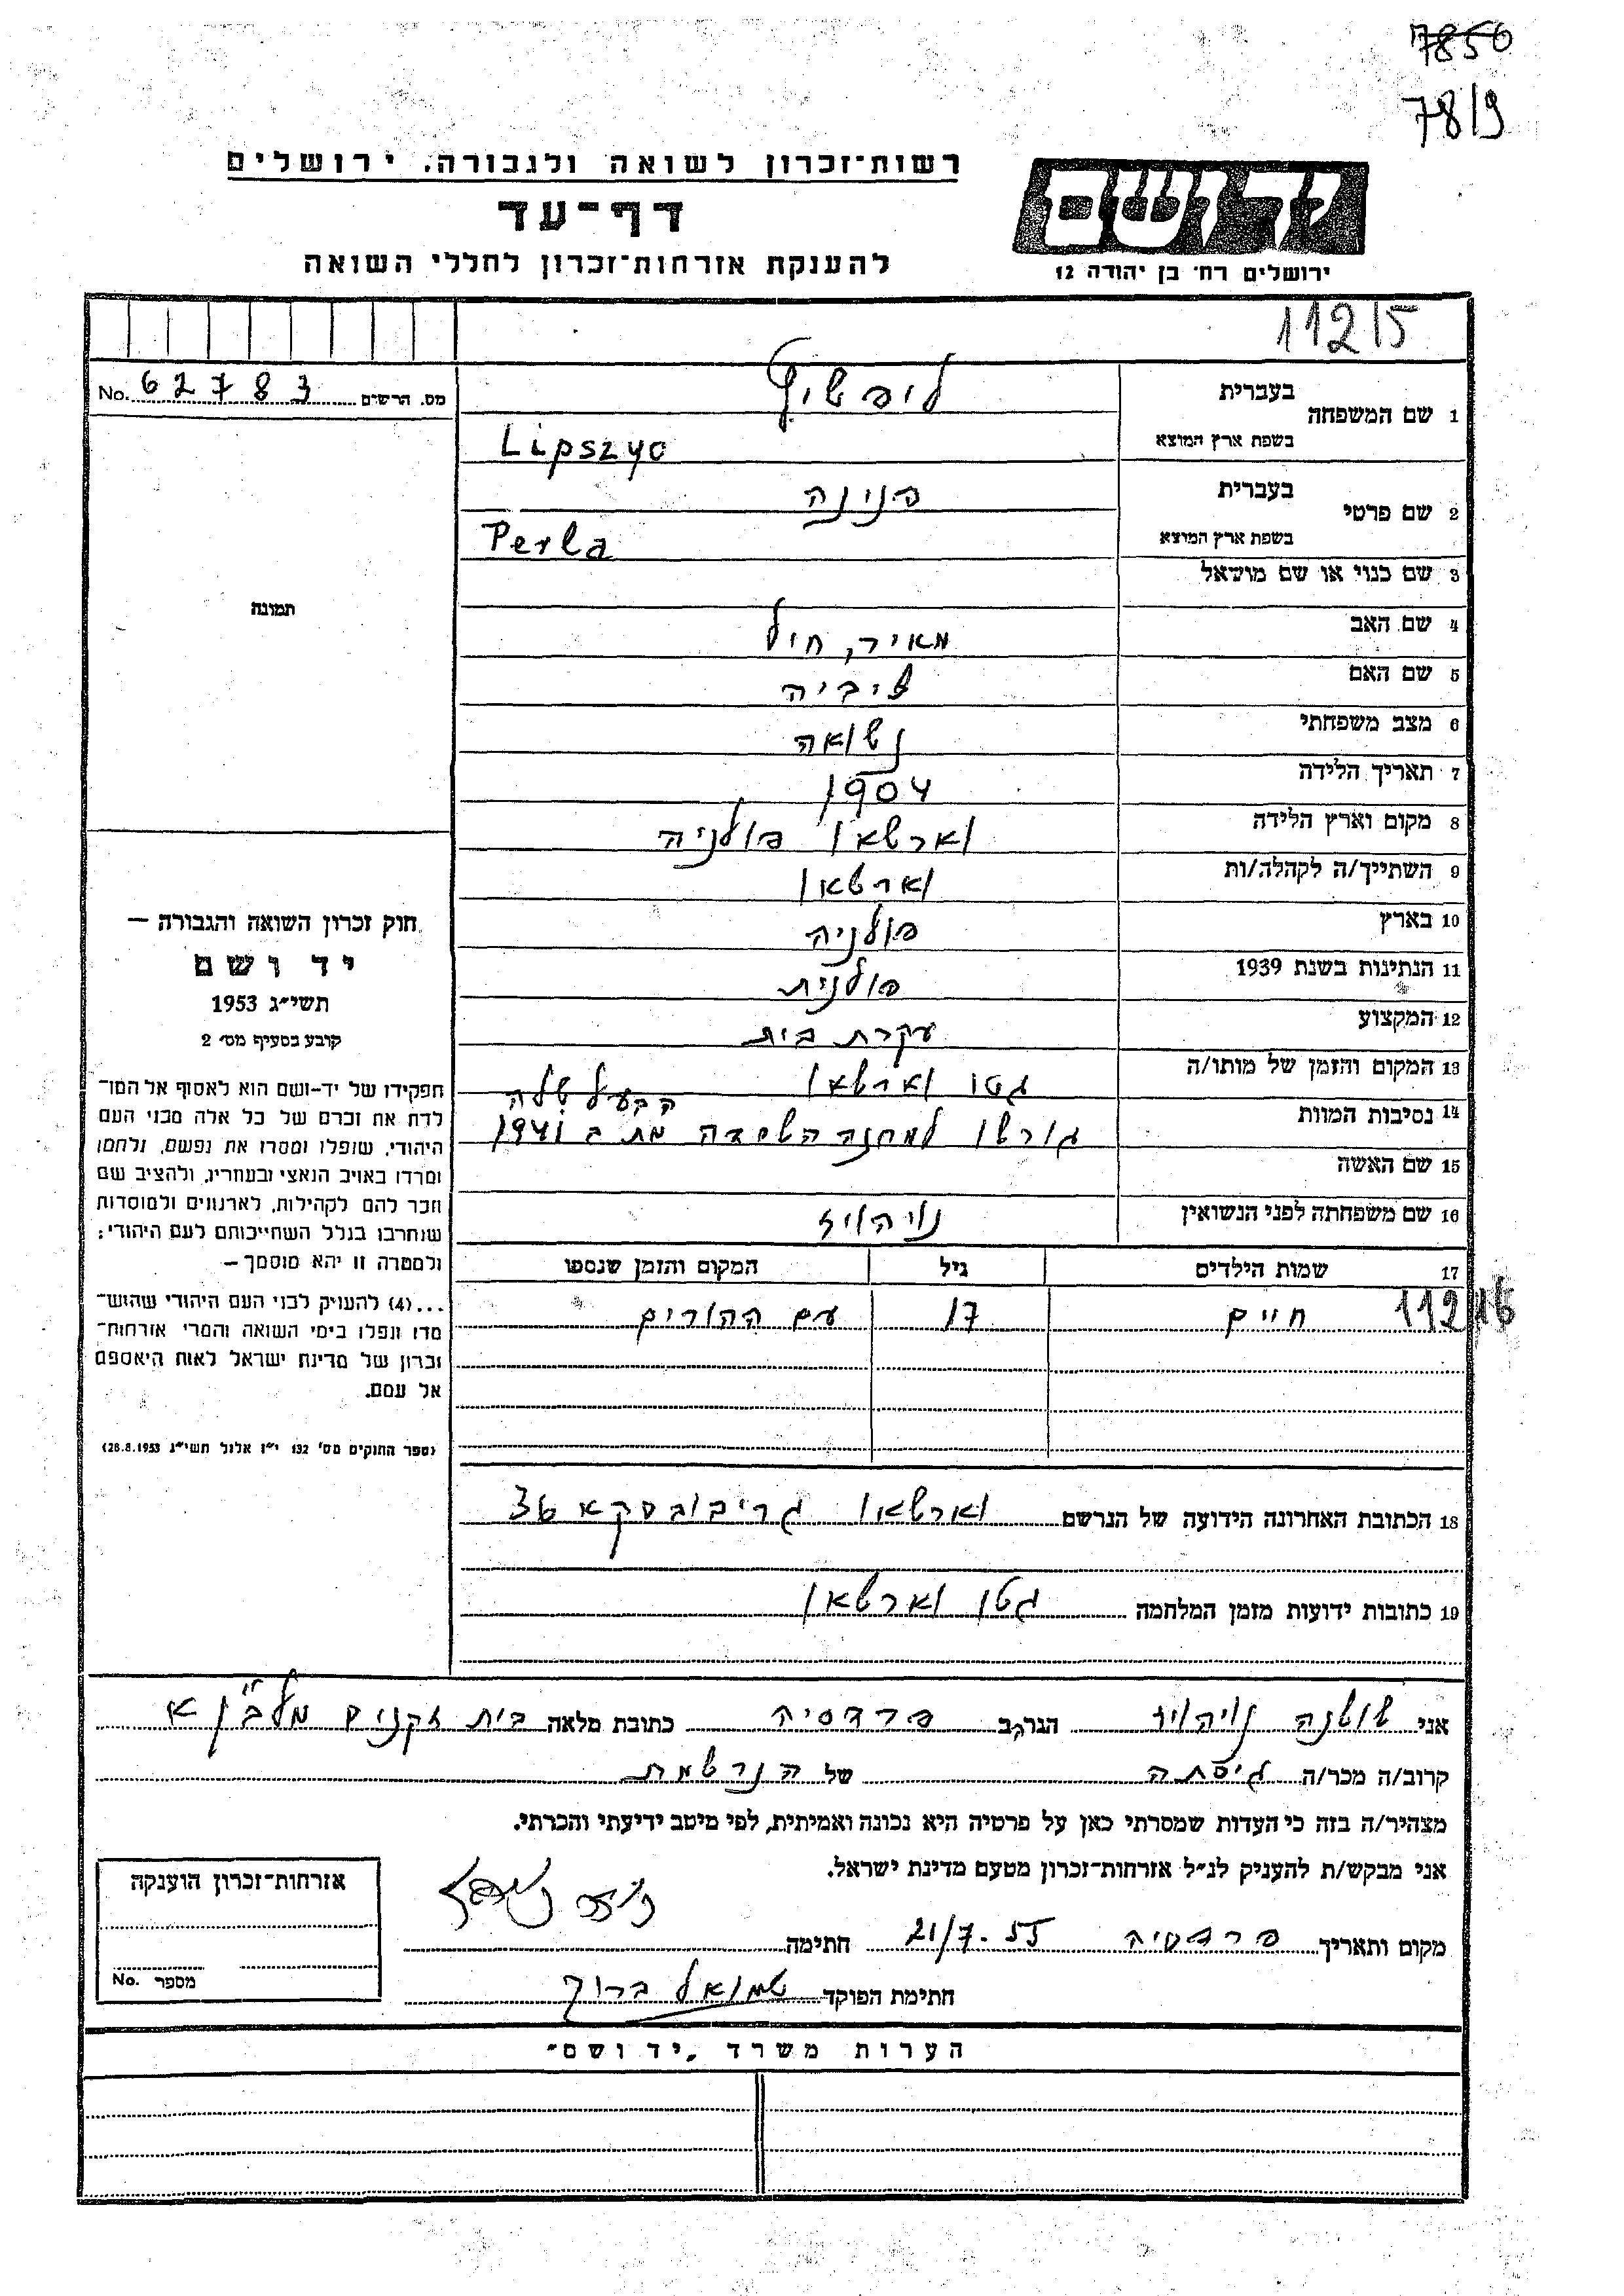 7850
7819
רשות־זכרון לשואה ולגבורה, ירושלים
דף־עד
להענקת אזרחות־זכרון לחללי השואה
יד ושם
ירושלים רח׳ בן יהודה 12
11215
No. 62783 מס. הרשים
1 שם המשפחה בעברית ליפשיץ
בשפת ארץ המוצא Lipszyc
2 שם פרטי בעברית פנינה
בשפת ארץ המוצא Perla
3 שם כנוי או שם מושאל
4 שם האב מאיר,
5 שם האם צביה
6 מצב משפחתי נשואה
7 תאריך הלידה 1904
8 מקום וארץ הלידה ווארשאו פולניה
9 השתייך/ה לקהלה/ות ווארשאו
10 בארץ פולניה
11 הנתינות בשנת 1939 פולנית
12 המקצוע עקרת בית
13 המקום והזמן של מותו/ה גטו ווארשאו
14 נסיבות המוות הבעל שלה
גורשו למחנה השמדה מת ב 1941
15 שם האשה
16 שם משפחתה לפני הנשואין נויהויז
17 שמות הילדים גיל המקום והזמן שנספו
11216 חיים 17 עם ההורים
18 הכתובת האחרונה הידועה של הנרשם ווארשאו גריבובסקא 36
19 כתובות ידועות מזמן המלחמה גטו ווארשאו
תמונה
חוק זכרון השואה והגבורה —
יד ושם
תשי״ג 1953
קובע בסעיף מס׳ 2
תפקידו של יד-ושם הוא לאסוף אל המו־
לדת את זכרם של כל אלה מבני העם
היהודי, שנפלו ומסרו את נפשם, נלחמו
ומרדו באויב הנאצי ובעוזריו, ולהציב שם
וזכר להם לקהילות, לארגונים ולמוסדות
שנחרבו בגלל השתייכותם לעם היהודי;
ולמטרה זו יהא מוסמך —
...(4) להעניק לבני העם היהודי שהוש־
מדו ונפלו בימי השואה והמרי אזרחות־
זכרון של מדינת ישראל לאות היאספם
אל עמם.
(ספר החוקים מס׳ 132 י״ז אלול תשי״ג 28.8.1953)
אני שושנה נויהויז הגר/ב פרדסיה כתובת מלאה בית זקנים מלב״ן א
קרוב/ה מכר/ה גיסתה של הנרשמת
מצהיר/ה בזה כי העדות שמסרתי כאן על פרטיה היא נכונה ואמיתית, לפי מיטב ידיעתי והכרתי.
אני מבקש/ת להעניק לנ״ל אזרחות־זכרון מטעם מדינת ישראל.
מקום ותאריך פרדסיה 21/7.55 חתימה
חתימת הפוקד שמואל ברוך
אזרחות־זכרון הוענקה
מספר No.
הערות משרד „יד ושם״